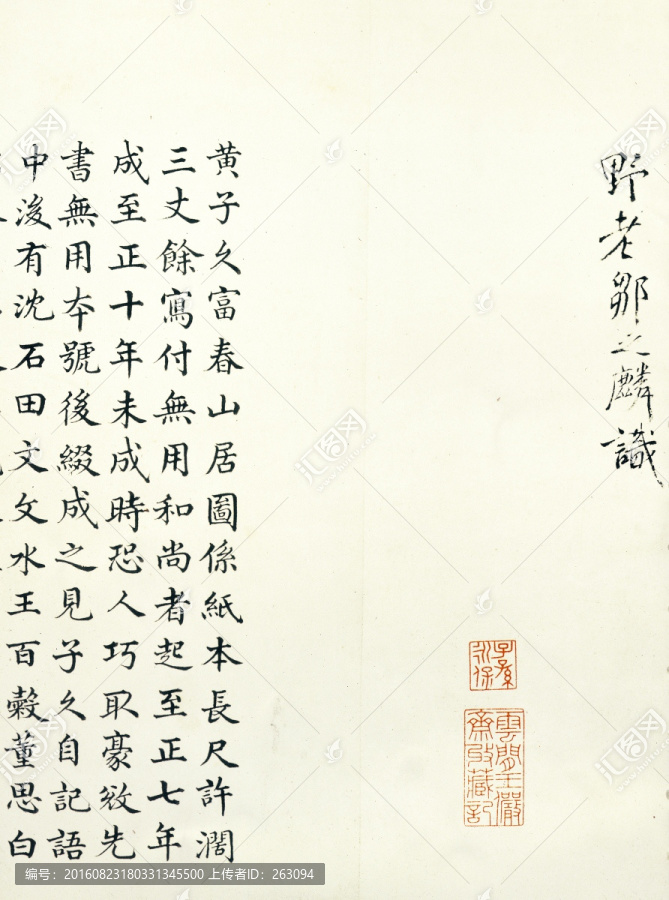 野老鄒之麟識
子孫永保
雲間王儼齋收藏記
黄子久富春山居圖係紙本長尺許濶
三丈餘寫付無用和尚者起至正七年
成至正十年未成時恐人巧取豪敚先
書無用本號後綴成之見子久自記語
中後有沈石田文文水王百穀董思白
编号：20160823180331345500 上传者ID：263094
汇图网